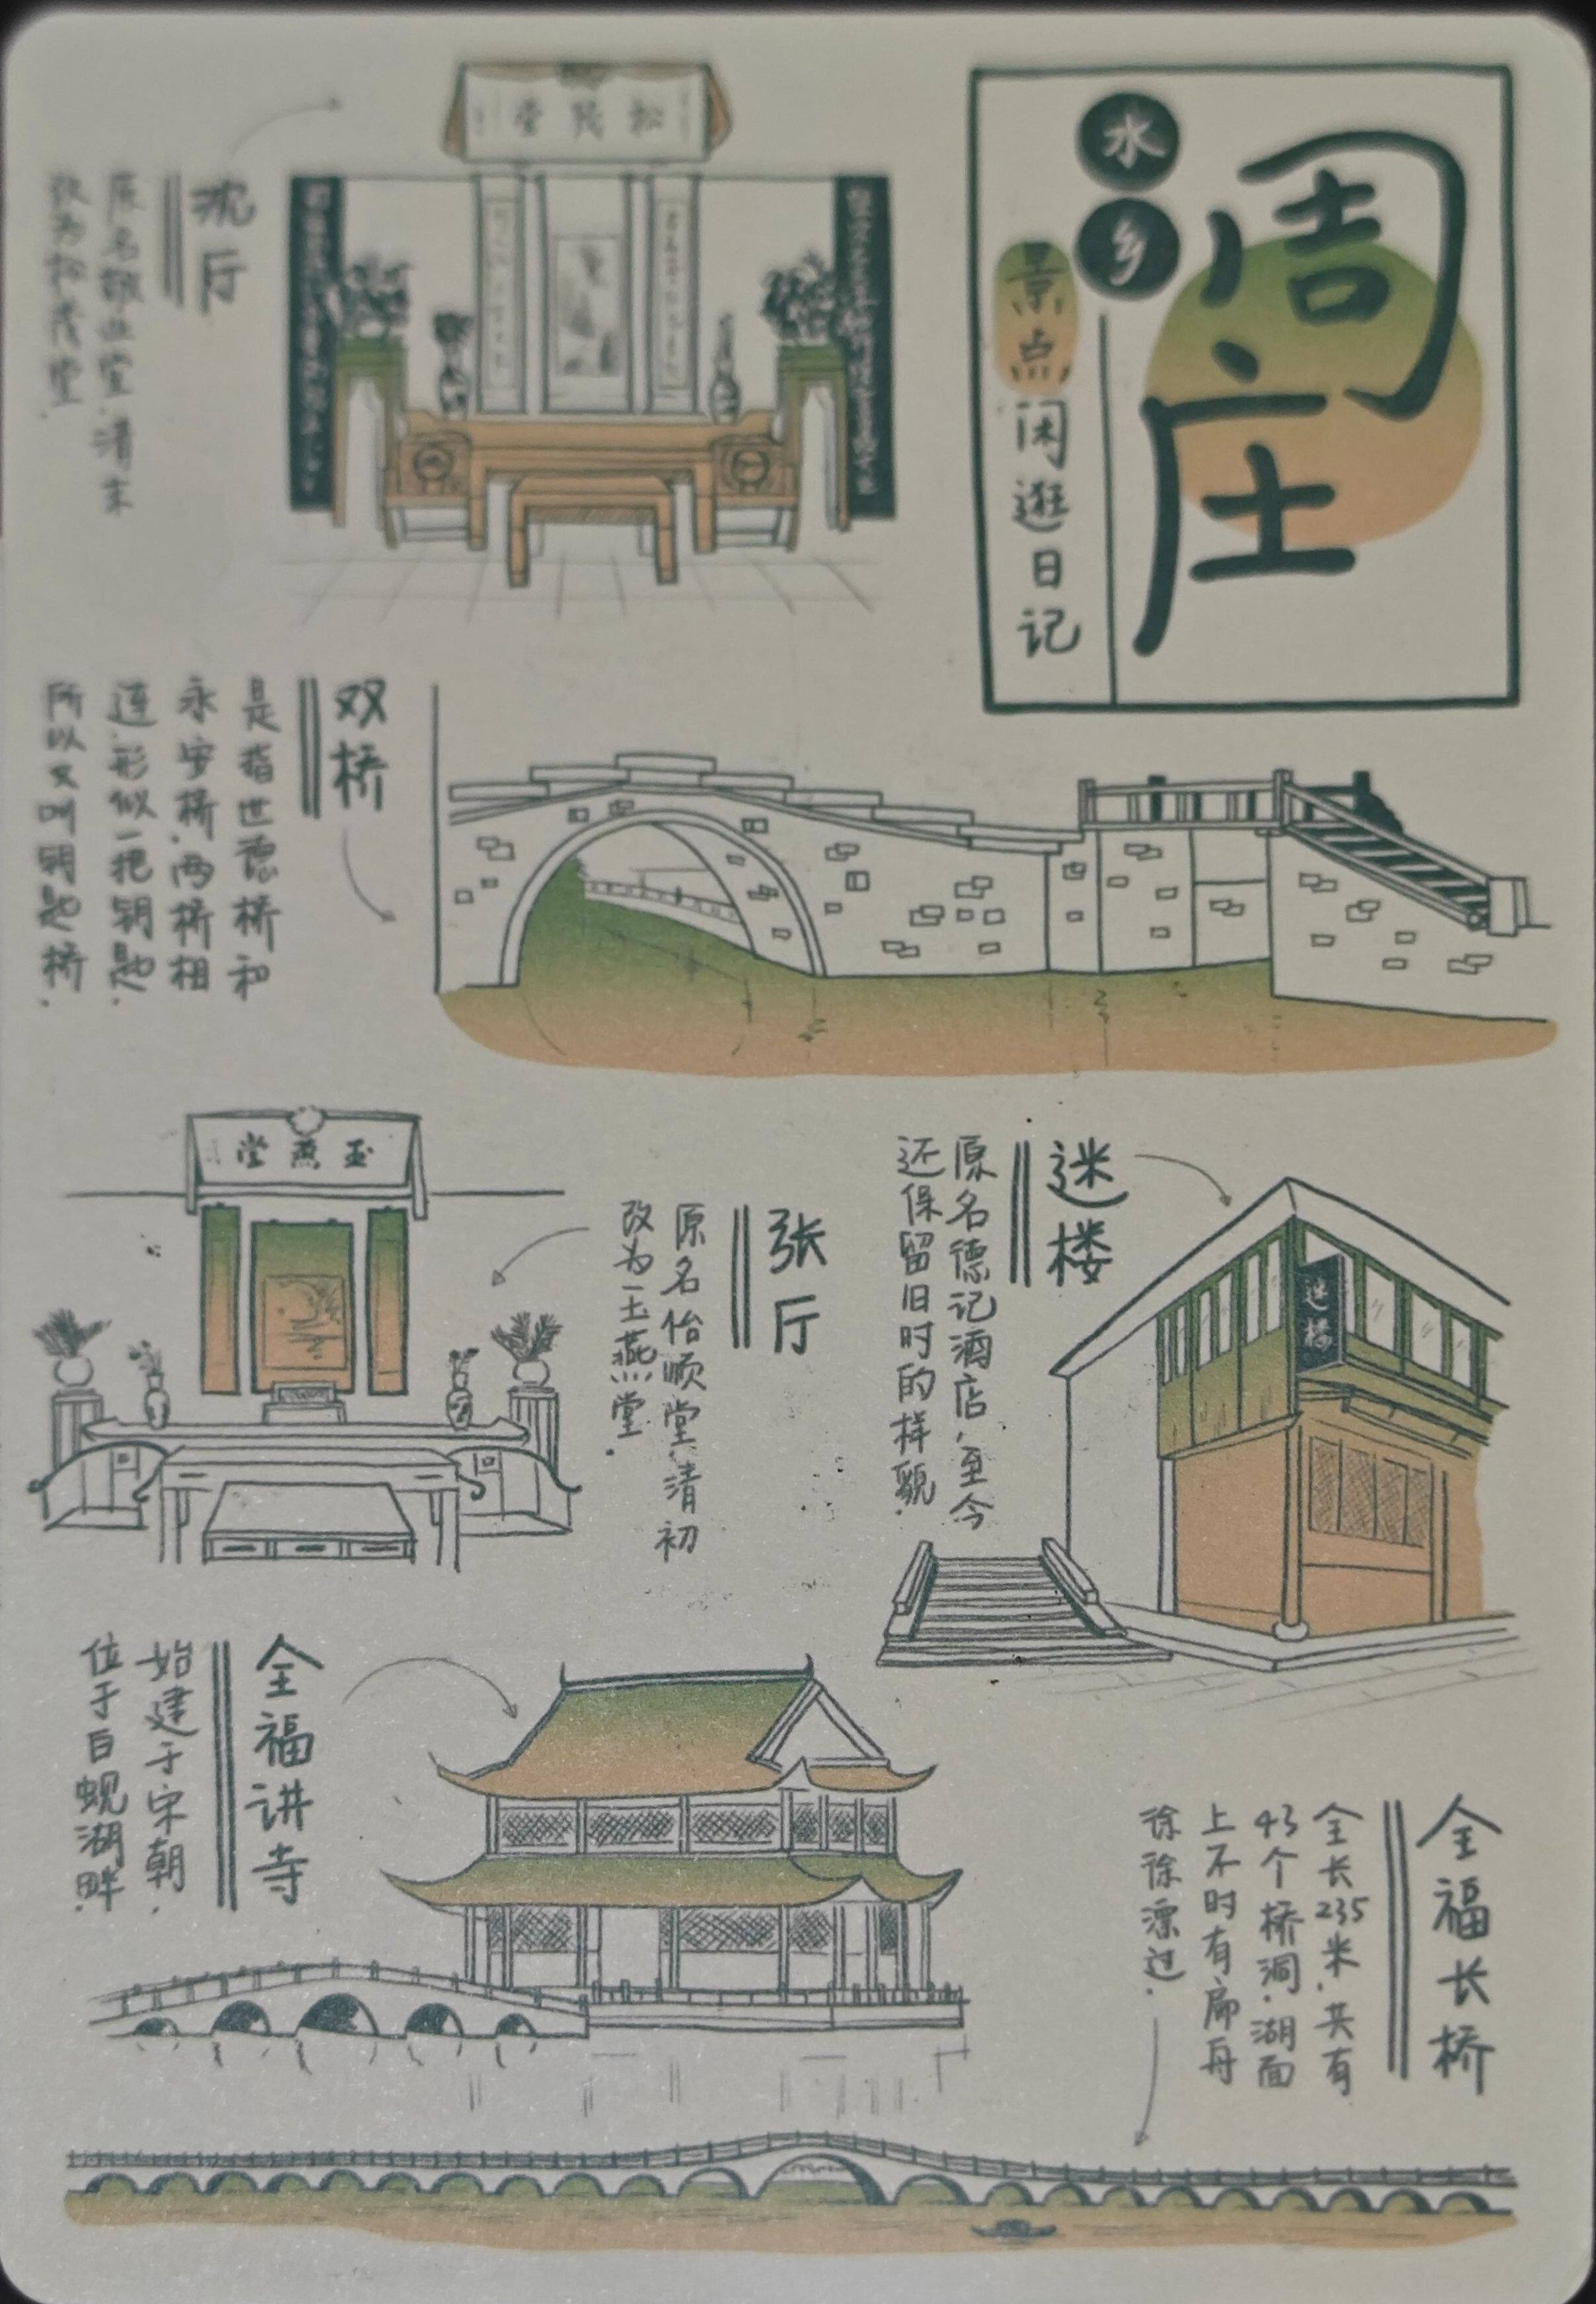 周庄
水乡
景点闲逛日记
松茂堂
沈厅
原名敬业堂,清末
改为松茂堂.
双桥
是指世德桥和
永安桥.两桥相
连.形似一把钥匙.
所以又叫钥匙桥.
迷楼
原名德记酒店,至今
还保留旧时的样貌.
迷楼
张厅
原名怡顺堂,清初
改为玉燕堂.
玉燕堂
全福讲寺
始建于宋朝,
位于白蚬湖畔.
全福长桥
全长235米,共有
43个桥洞.湖面
上不时有扁舟
徐徐漂过.